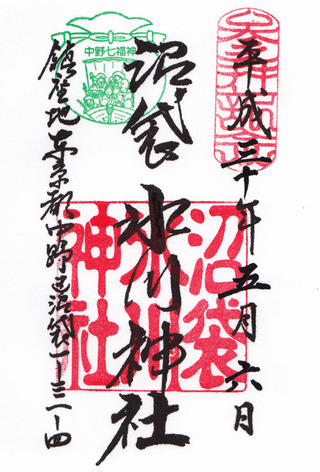 平成三十年五月六日
沼袋
氷川神社
鎮座地東京都中野区沼袋一ー三一ー四
中野七福神
沼袋
氷川
神社